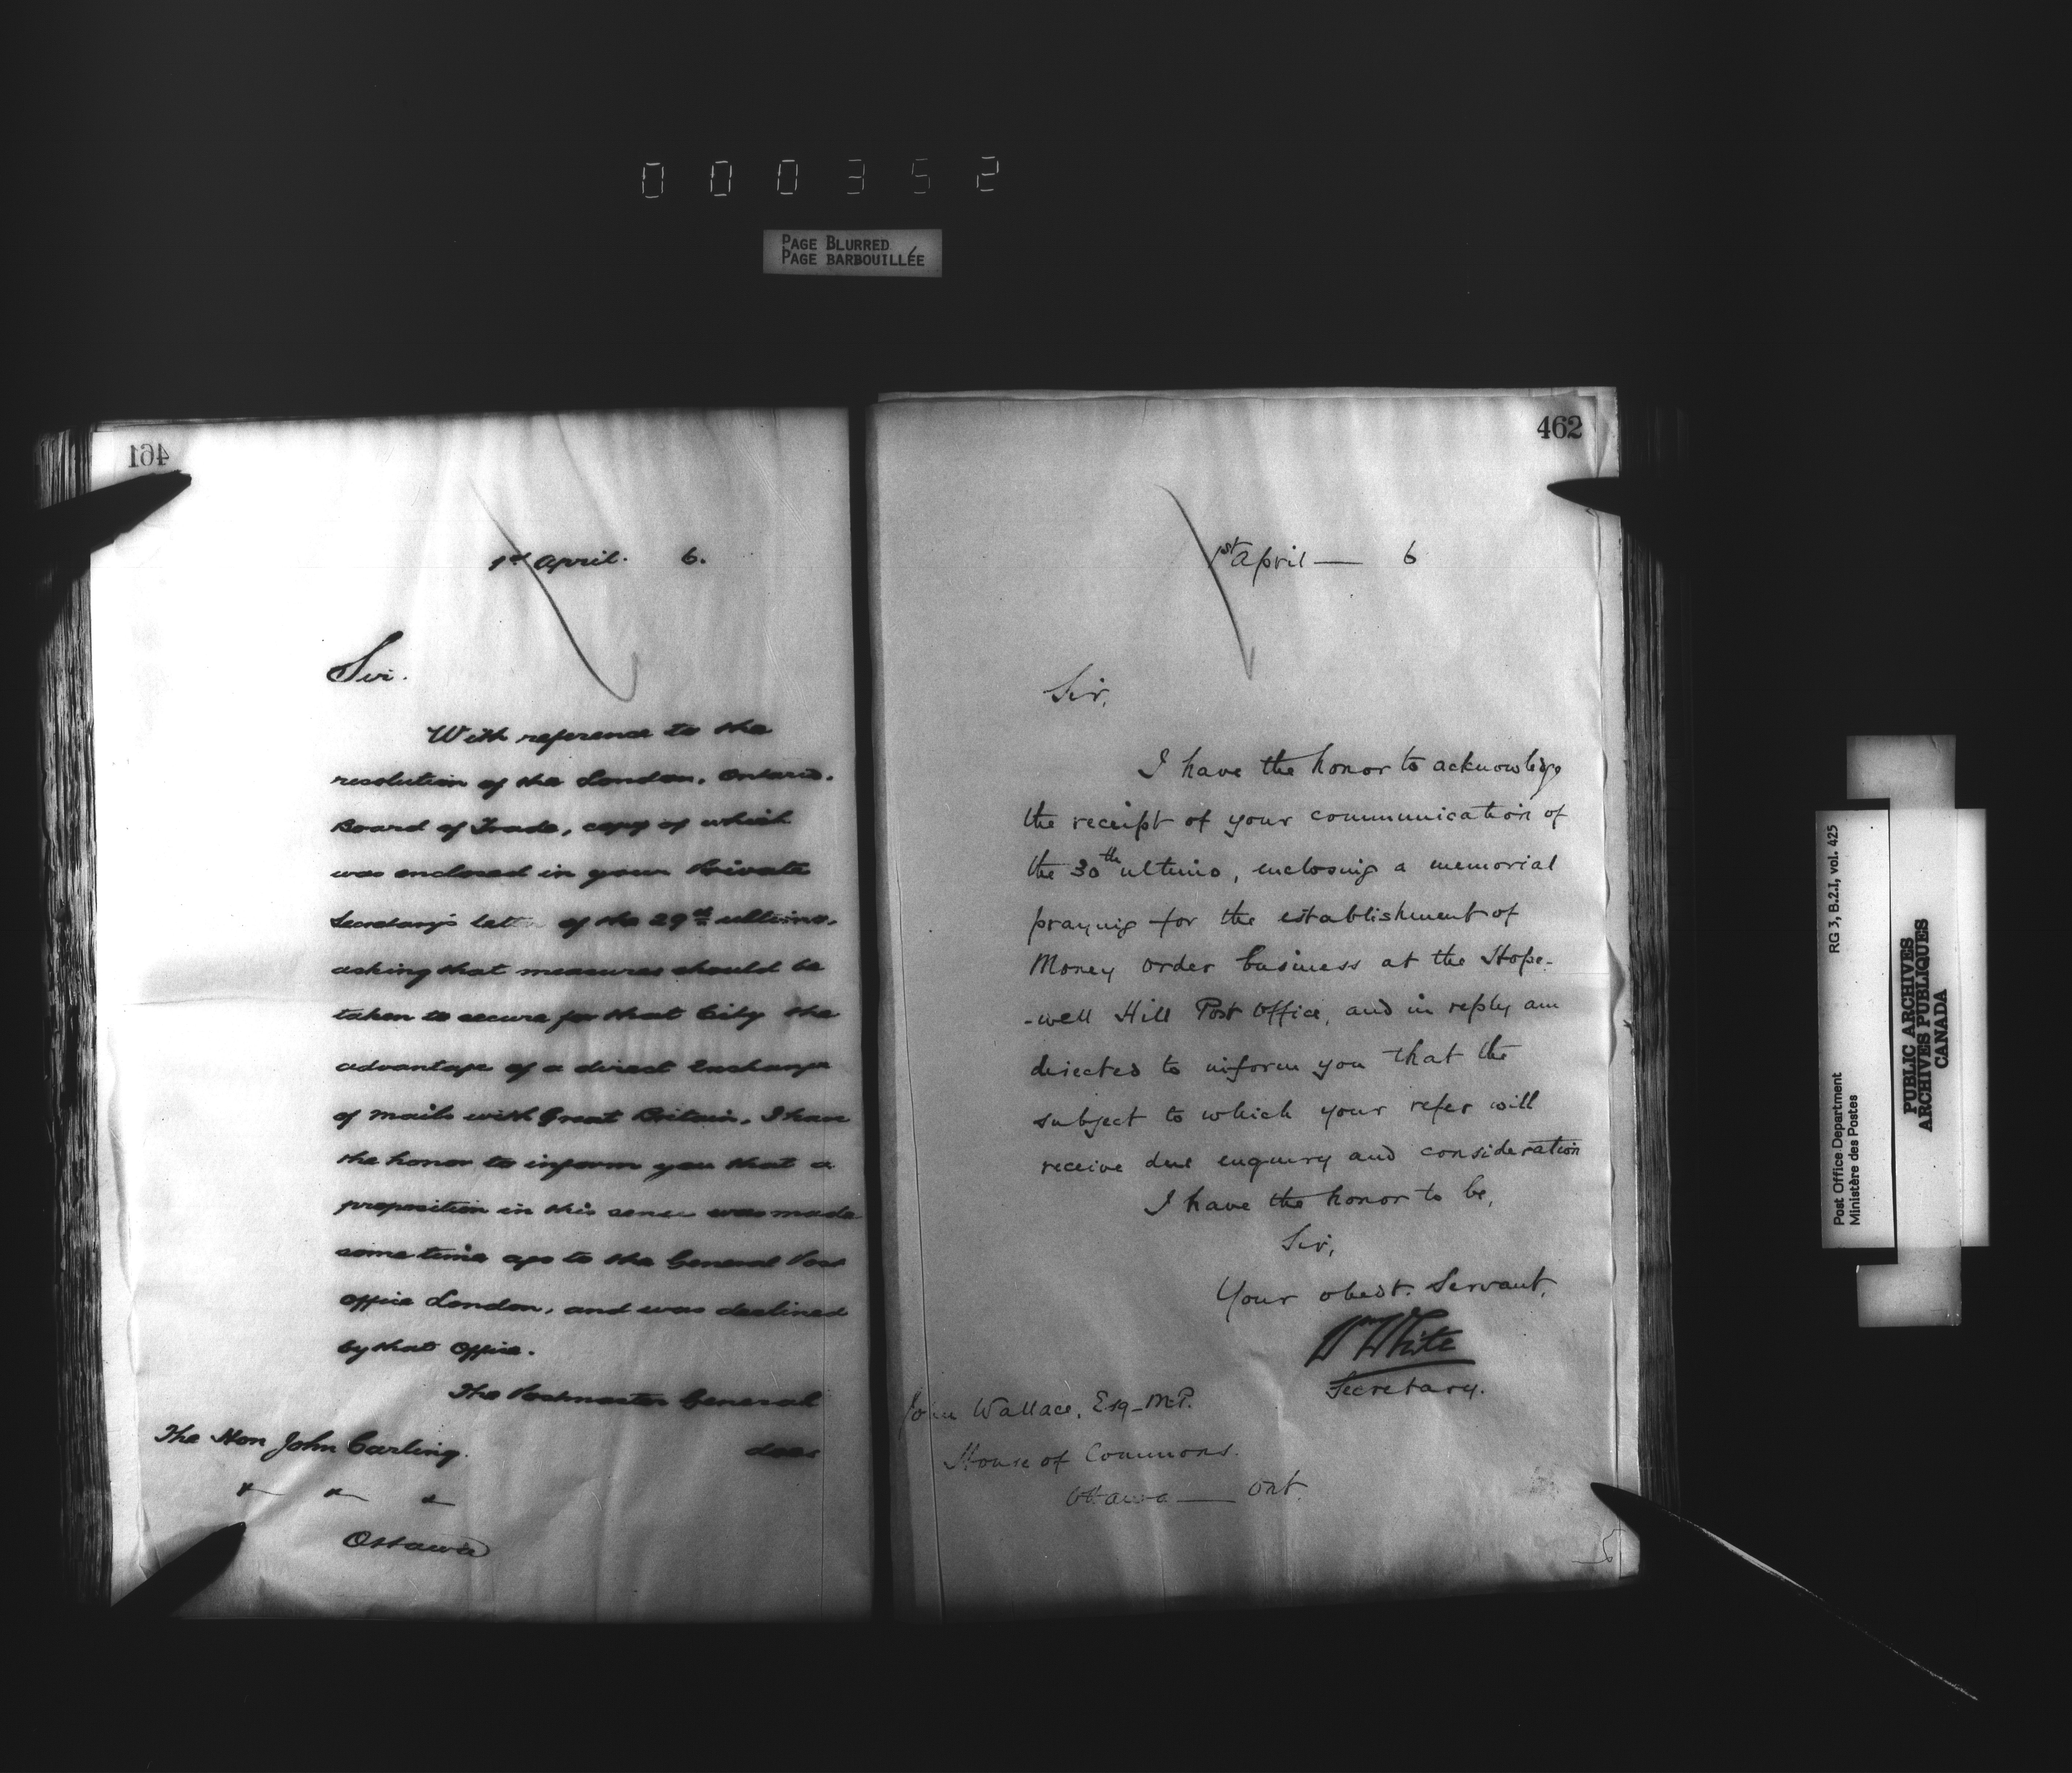 000352
PAGE BLURRED
PAGE BARBOUILLÉE
461
1st April. 6.
Sir.
With reference to the
resolution of the London, Ontario.
Board of Trade, copy of which
was enclosed in your Private
Secretary's letter of the 29th ultimo.
asking that measures should be
taken to secure for that City the
advantage of a direct Exchange
of Mails with Great Britain, I have
the honor to inform you that a
proposition in this sense was made
some time ago to the General Post
Office London, and was declined
by that Office.
The Postmaster General
does
The Hon John Carling.
Ottawa
462
1st April — 6
Sir,
I have the honor to acknowledge
the receipt of your communication of
the 30th ultimo, enclosing a memorial
praying for the establishment of
Money order business at the Hope-
-well Hill Post Office, and in reply am
directed to inform you that the
subject to which your refer will
receive due enquiry and consideration
I have the honor to be,
Sir,
Your obedt. Servant,
Wm White
Secretary.
John Wallace, Esq - M.P.
House of Commons.
Ottawa — Ont.
RG 3, B.2.I, vol. 425
Post Office Department
Ministère des Postes
PUBLIC ARCHIVES
ARCHIVES PUBLIQUES
CANADA